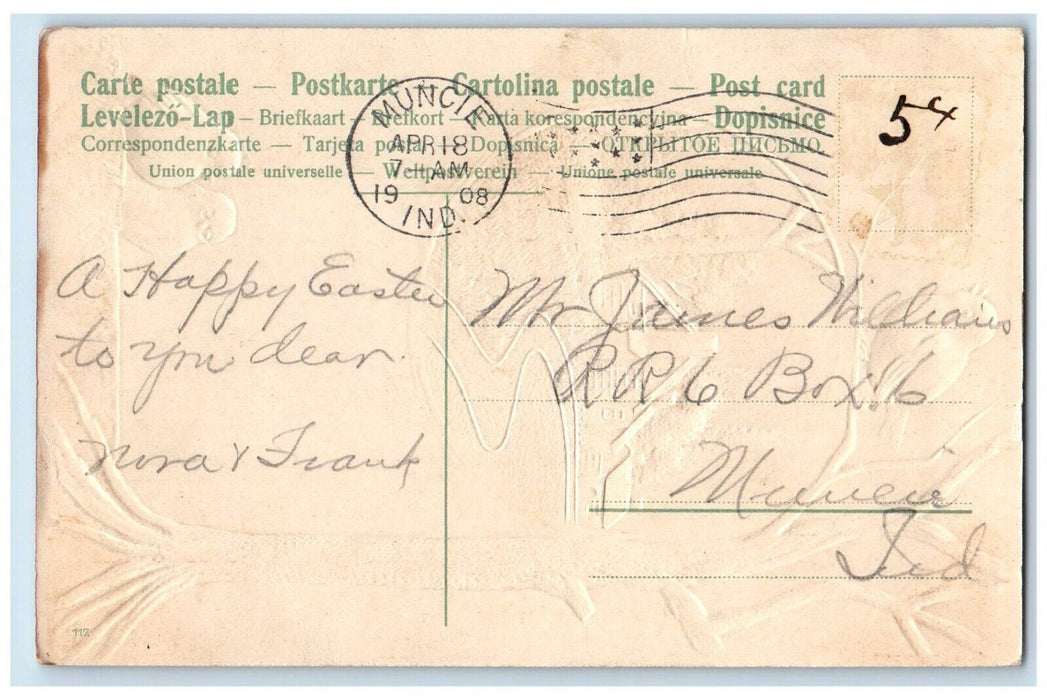 Carte postale — Postkarte — Cartolina postale — Post card
Levelező-Lap — Briefkaart — Brefkort — Karta korespondencyjna — Dopisnice
Correspondenzkarte — Tarjeta postal — Dopisnica — ОТКРЫТОЕ ПИСЬМО
Union postale universelle — Weltpostverein — Unione postale universale
MUNCIE
APR 18
7–AM
19 08
IND.
54
A Happy Easter
to you dear.
Nora & Frank
Mr James Williams
R.R. 6 Box. 6
Muncie
Ind
112